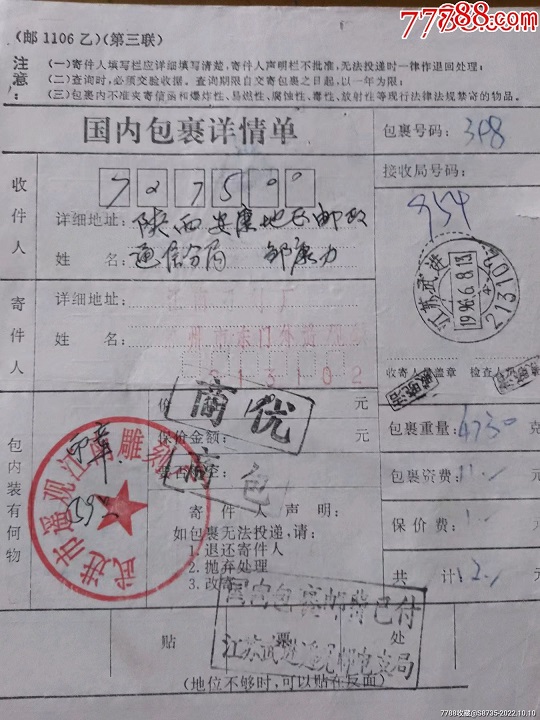 7788.com
中国收藏热线
(邮1106乙)(第三联)
注意：
(一)寄件人填写栏应详细填写清楚，寄件人声明栏不批准，无法投递时一律作退回处理；
(二)查询时，必须交验收据。查询期限自交寄包裹之日起，以一年为限；
(三)包裹内不准夹寄信函和爆炸性、易燃性、腐蚀性、毒性、放射性等现行法律法规禁寄的物品。
国内包裹详情单
包裹号码：308
接收局号码：
954
收件人
727500
详细地址：陕西安康地区邮政
姓名：通信分局 邹康力
江苏武进
1996.8.13
213102
寄件人
详细地址：
姓名：
213102
收寄人员盖章 检查人员
价 元
商优
商包
保价金额： 元
包裹重量：4730 克
包裹资费： 元
保价费： 元
共计：12. 元
包内装有何物
武进市遥观江南雕刻
寄件人声明：
如包裹无法投递，请：
1.退还寄件人
2.抛弃处理
3.改寄
国内包裹邮费已付
江苏武进遥观邮电支局
贴 票 处
(地位不够时，可以贴在反面)
7788收藏@S8735-2022.10.10